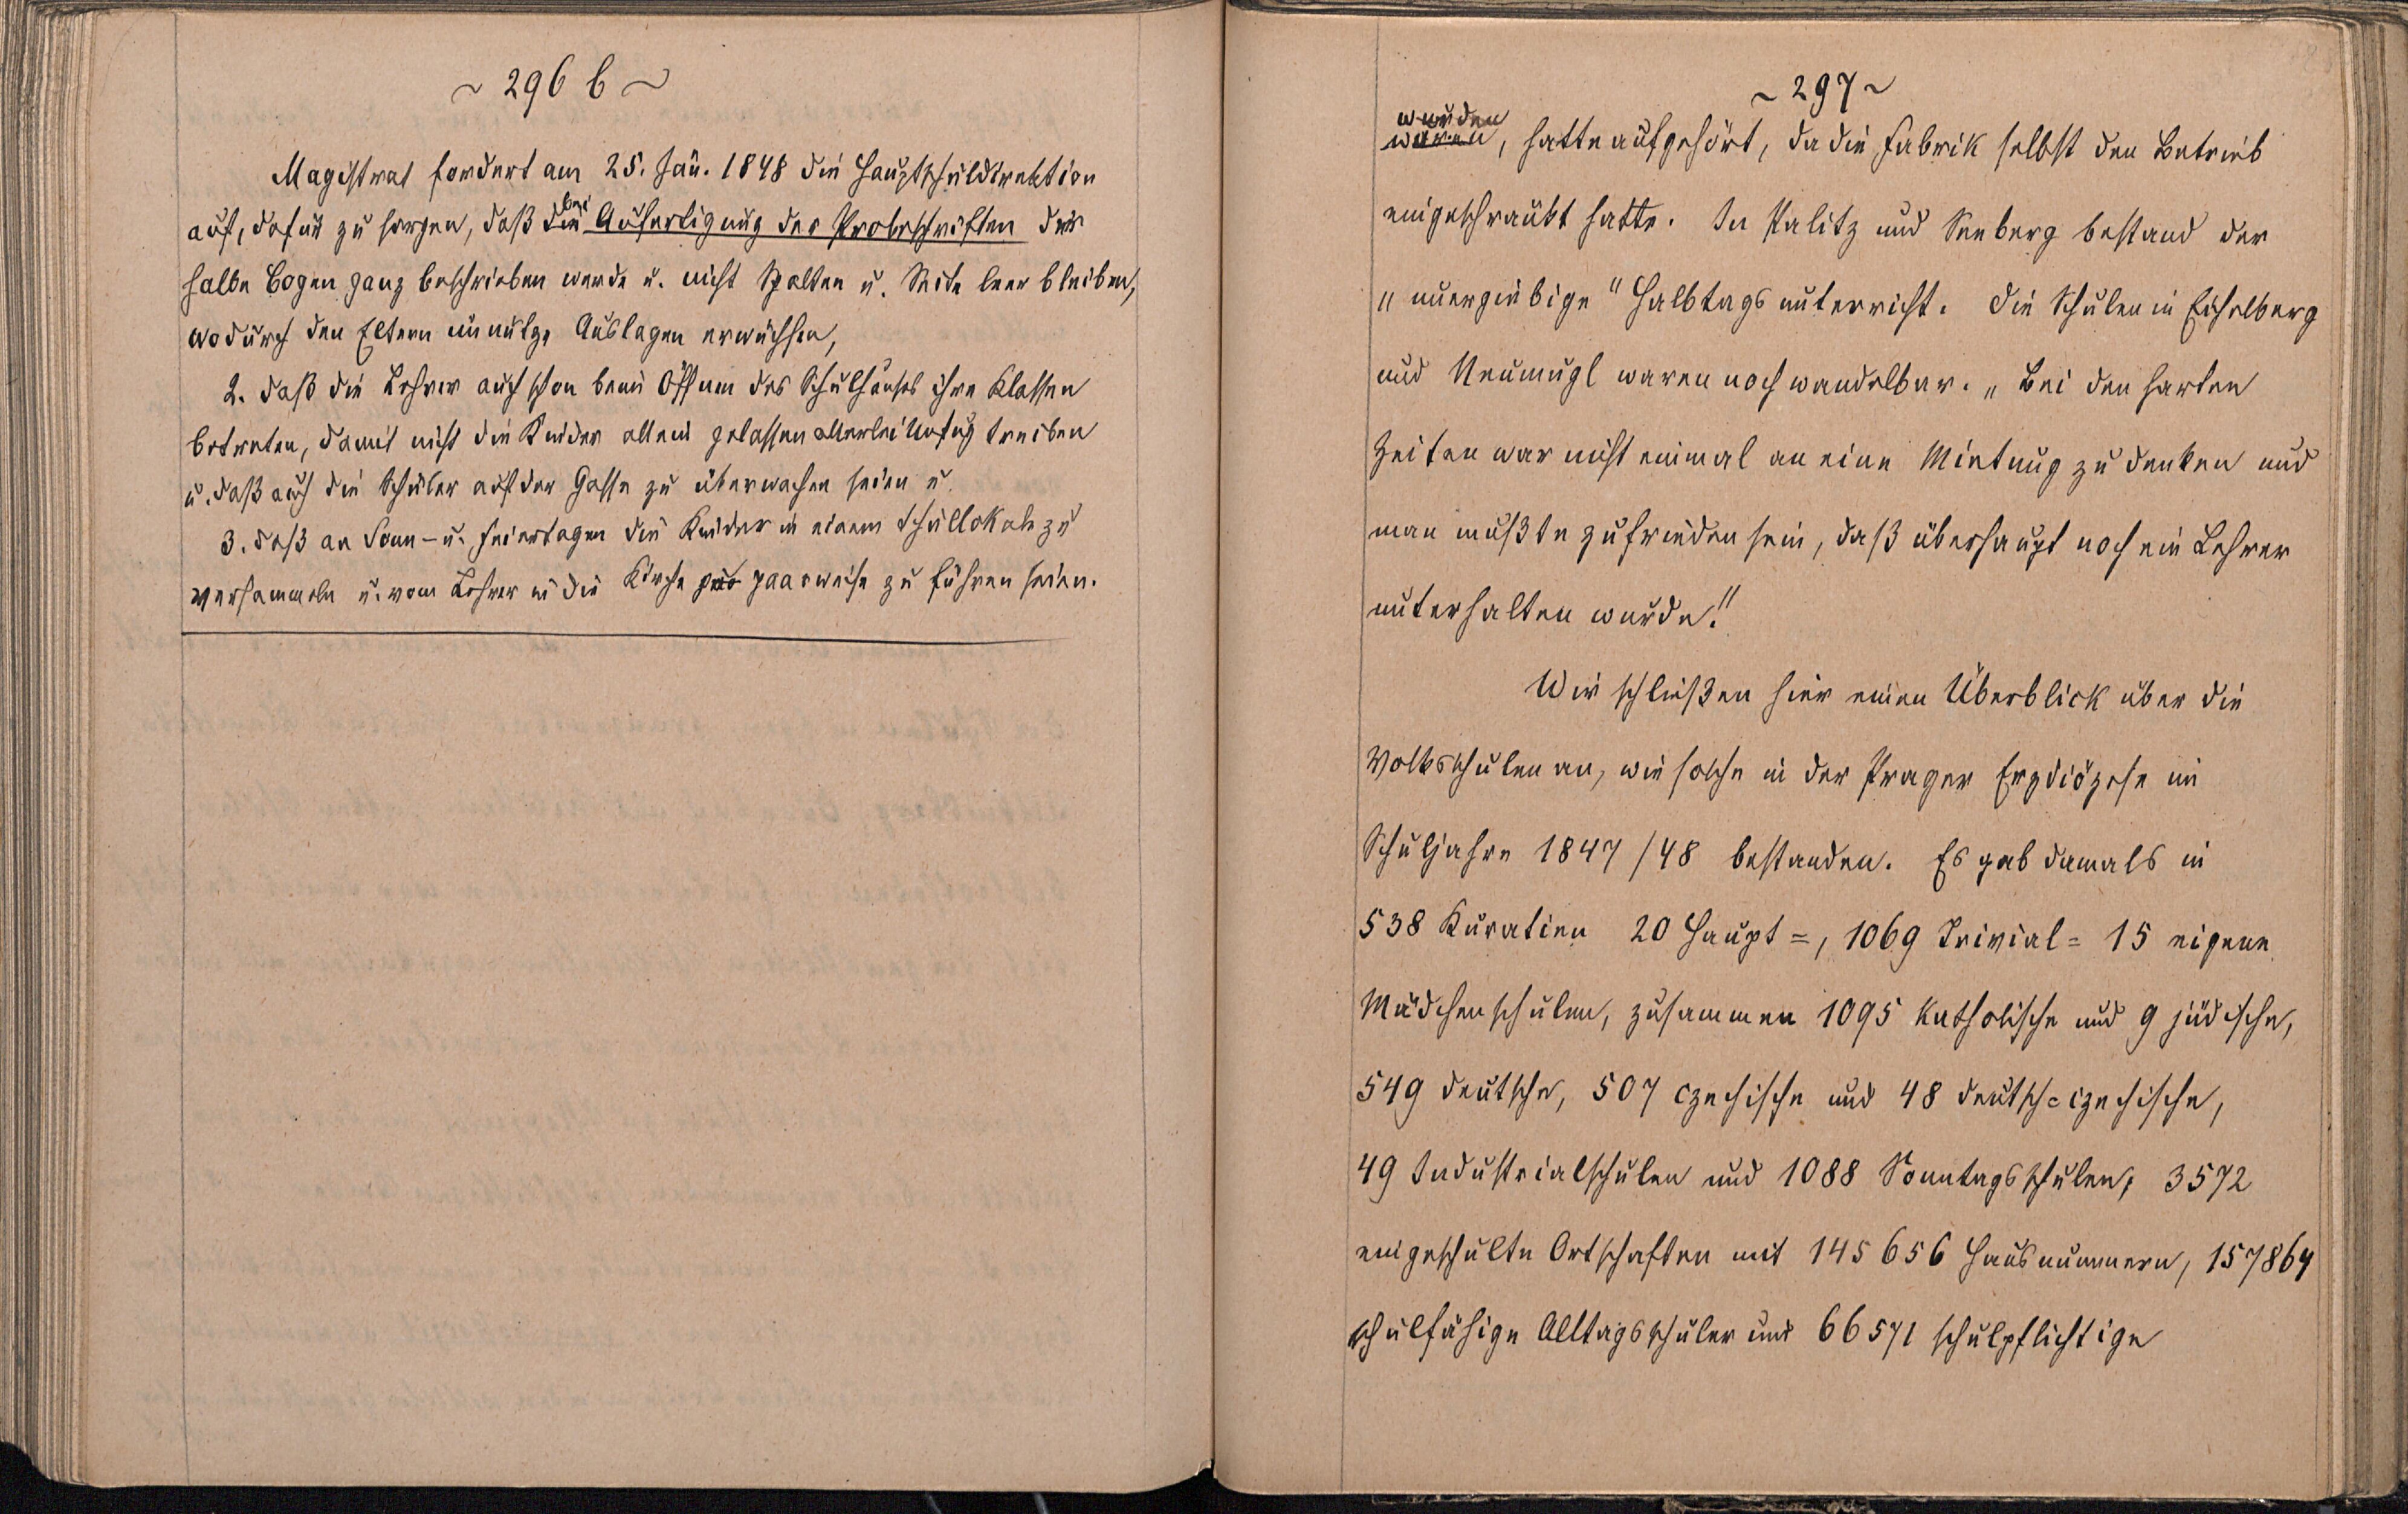 ~ 296 b ~
Magistrat fordert am 25. Jän. 1848 die Hauptschuldirektion
auf, dafür zu sorgen, daß bei Ausfertigung der Probeschriften der
halbe Bogen ganz beschrieben werde u. nicht Spalten u. Seite leer bleiben,
wodurch den Eltern unnütze Auslagen erwüchsen,
2. daß die Lehrer auch schon beim Öffnen des Schulhauses ihre Klassen
betreten, damit nicht die Kinder allein gelassen allerlei Unfug treiben
u. daß auch die Schüler auf der Gasse zu überwachen seien u.
3. daß an Sonn- u. Feiertagen die Kinder in einem Schullokale zu
versammeln u. vom Lehrer in die Kirche paarweise zu führen seien.
~ 297 ~
wurden
waren, hatte aufgehört, da die Fabrik selbst den Betrieb
eingeschränkt hatte. In Palitz und Seeberg bestand der
"unergiebige" Halbtagsunterricht. Die Schulen in Eichelberg
und Neumugl waren noch wandelbar. „Bei den harten
Zeiten war nicht einmal an eine Mietung zu denken und
man mußte zufrieden sein, daß überhaupt noch ein Lehrer
unterhalten wurde."
Wir schließen hier einen Überblick über die
Volksschulen an, wie solche in der Prager Erzdiözese im
Schuljahre 1847/48 bestanden. Es gab damals in
538 Kuratien 20 Haupt=, 1069 Trivial= 15 eigene
Mädchenschulen, zusammen 1095 katholische und 9 jüdische,
549 deutsche, 507 czechische und 48 deutsch=czechische,
49 Industrialschulen und 1088 Sonntagsschulen, 3572
eingeschulte Ortschaften mit 145656 Hausnummern, 157864
schulfähige Alltagsschüler und 66571 schulpflichtige